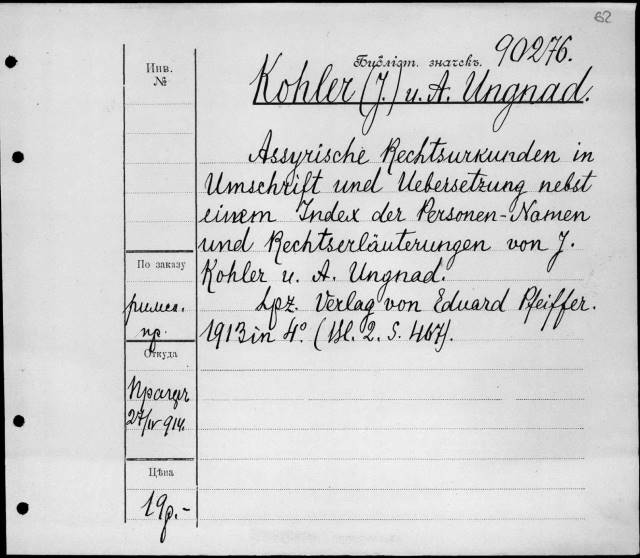 62
Библіот. значекъ. 90276.
Инв.
№
Kohler (J.) u. A. Ungnad.
Assyrische Rechtsurkunden in
Umschrift und Uebersetzung nebst
einem Index der Personen-Namen
und Rechtserläuterungen von J.
Kohler u. A. Ungnad.
Lpz. Verlag von Eduard Pfeiffer.
1913 in 4° (Bl. 2. S. 467).
По заказу
римск.
пр.
Откуда
27/IV 914.
Цѣна
19 р. -